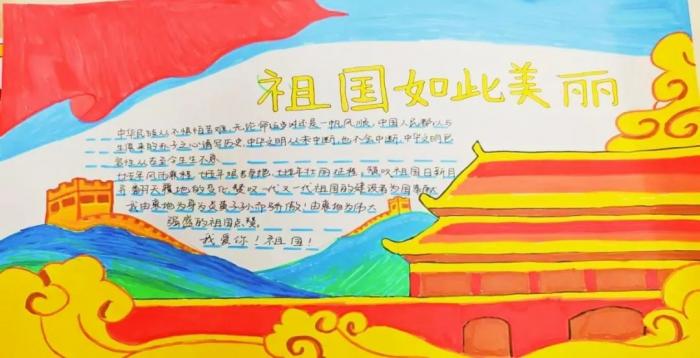 祖国如此美丽
中华民族从不惧怕苦难,无论命运当时还是一帆风顺,中国人民都以与
生俱来的赤子之心谱写历史,中华文明从未中断,也不会中断,中华文明民
名性从古至今生生不息
七十年风雨兼程,七十年艰苦奋地,七十年壮丽征程,赞叹祖国日新月
异 翻天覆地的变化,赞叹一代又一代祖国的建设者为国奉献
我由衷地为身为炎黄子孙而骄傲!由衷地为伟大
强盛的祖国点赞。
我爱你!祖国!